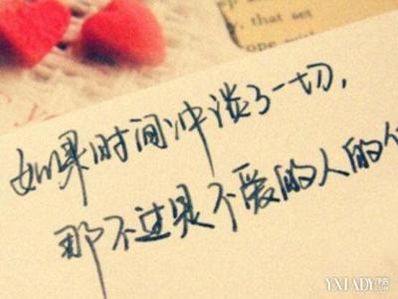 that set
如果时间冲淡了一切,
那不过是不爱的人的
YXLADY